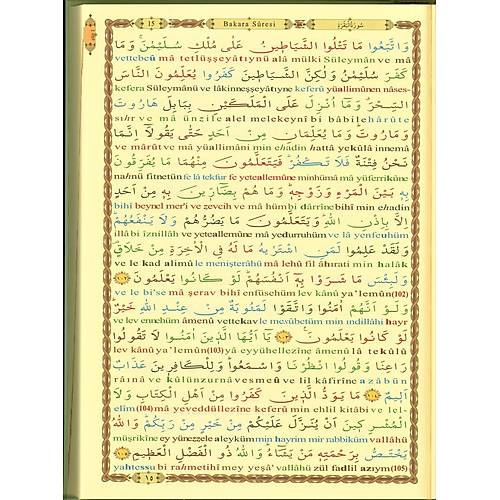 15 Bakara Sûresi سُورَةُ الْبَقَرَةِ
وَاتَّبَعُوا مَا تَتْلُوا الشَّيَاطِينُ عَلٰى مُلْكِ سُلَيْمٰنَۚ وَمَا
vettebeû mâ tetlüşşeyâtıynü alâ mülki Süleymân ve mâ
كَفَرَ سُلَيْمٰنُ وَلٰكِنَّ الشَّيَاطِينَ كَفَرُوا يُعَلِّمُونَ النَّاسَ
kefera Süleymânü ve lâkinneşşeyâtıyne keferû yüallimûnen nâses-
السِّحْرَۗ وَمَٓا اُنْزِلَ عَلَى الْمَلَكَيْنِ بِبَابِلَ هَارُوتَ
sıhr ve mâ ünzile alel melekeynî bi bâbile hârûte
وَمَارُوتَۜ وَمَا يُعَلِّمَانِ مِنْ اَحَدٍ حَتّٰى يَقُولَٓا اِنَّمَا
ve mârût ve mâ yüallimâni min ehadin hattâ yekûlâ innemâ
نَحْنُ فِتْنَةٌ فَلَا تَكْفُرْۜ فَيَتَعَلَّمُونَ مِنْهُمَا مَا يُفَرِّقُونَ
nahnü fitnetün fe lâ tekfür fe yeteallemûne minhümâ mâ yüferrikûne
بِه۪ بَيْنَ الْمَرْءِ وَزَوْجِه۪ۜ وَمَا هُمْ بِضَٓارّ۪ينَ بِه۪ مِنْ اَحَدٍ
bihî beynel mer'i ve zevcih ve mâ hüm bi dârrîne bihî min ehadin
اِلَّا بِاِذْنِ اللّٰهِۜ وَيَتَعَلَّمُونَ مَا يَضُرُّهُمْ وَلَا يَنْفَعُهُمْۜ
illâ bi iznillâh ve yeteallemûne mâ yedurruhüm ve lâ yenfeuhüm
وَلَقَدْ عَلِمُوا لَمَنِ اشْتَرٰيهُ مَا لَهُ فِي الْاٰخِرَةِ مِنْ خَلَاقٍۜ
ve le kad alimû le menişterâhü mâ lehû fil âhırati min halâk
وَلَبِئْسَ مَا شَرَوْا بِه۪ٓ اَنْفُسَهُمْۜ لَوْ كَانُوا يَعْلَمُونَ ﴿١٠٢﴾
ve le bi'se mâ şerav bihî enfüsehüm lev kânû ya'lemûn(102)
وَلَوْ اَنَّهُمْ اٰمَنُوا وَاتَّقَوْا لَمَثُوبَةٌ مِنْ عِنْدِ اللّٰهِ خَيْرٌۜ
ve lev ennehüm âmenû vettekav le mesûbetüm min ındillâhi hayr
لَوْ كَانُوا يَعْلَمُونَ۟ ﴿١٠٣﴾ يَٓا اَيُّهَا الَّذ۪ينَ اٰمَنُوا لَا تَقُولُوا
lev kânû ya'lemûn(103) yâ eyyühellezîne âmenû lâ tekûlû
رَاعِنَا وَقُولُوا انْظُرْنَا وَاسْمَعُواۜ وَلِلْكَافِر۪ينَ عَذَابٌ
râınâ ve kûlünzurnâ vesmeû ve lil kâfirîne azâbün
اَل۪يمٌ ﴿١٠٤﴾ مَا يَوَدُّ الَّذ۪ينَ كَفَرُوا مِنْ اَهْلِ الْكِتَابِ وَلَا
elîm(104) mâ yeveddüllezîne keferû min ehlil kitâbi ve lel-
الْمُشْرِك۪ينَ اَنْ يُنَزَّلَ عَلَيْكُمْ مِنْ خَيْرٍ مِنْ رَبِّكُمْۜ وَاللّٰهُ
müşrikîne ey yünezzele aleyküm min hayrim mir rabbiküm vallâhü
يَخْتَصُّ بِرَحْمَتِه۪ مَنْ يَشَٓاءُۜ وَاللّٰهُ ذُو الْفَضْلِ الْعَظ۪يمِ ﴿١٠٥﴾
yahtessu bi rahmetihî mey yeşâ' vallâhü zül fadlil azıym(105)
١٥